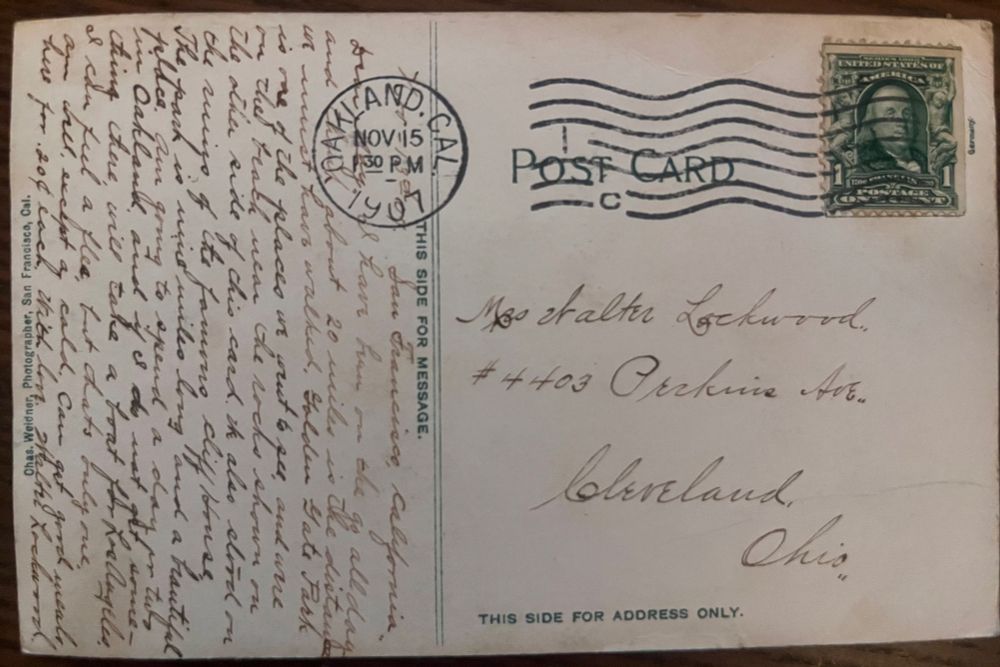 SERIES 1902
UNITED STATES OF
AMERICA
1 FRANKLIN 1
POSTAGE
ONE CENT
Germany.
OAKLAND. CAL.
NOV 15
1 30 PM
1907
C
POST CARD
THIS SIDE FOR MESSAGE.
Mrs Walter Lockwood.
#4403 Perkins Ave.
Cleveland.
Ohio.
THIS SIDE FOR ADDRESS ONLY.
San Francisco, California.
have been on the go all day
and about 20 miles is the distance
we must have walked, Golden Gate Park
is one of the places we went to see, and were
on the beach near the rocks shown on
the other side of this card I also stood on
the ruins of the famous cliff house,
The park is nine miles long and a beautiful
place, Am going to spend a day or two
in Oakland and if I do not get some-
thing there, will take a boat for Los Angeles
I can feel a flea, but that's only one,
am well except a cold, Can get good meals
here for 20¢ each, With love Walter Lockwood
Chas. Weidner, Photographer, San Francisco, Cal.